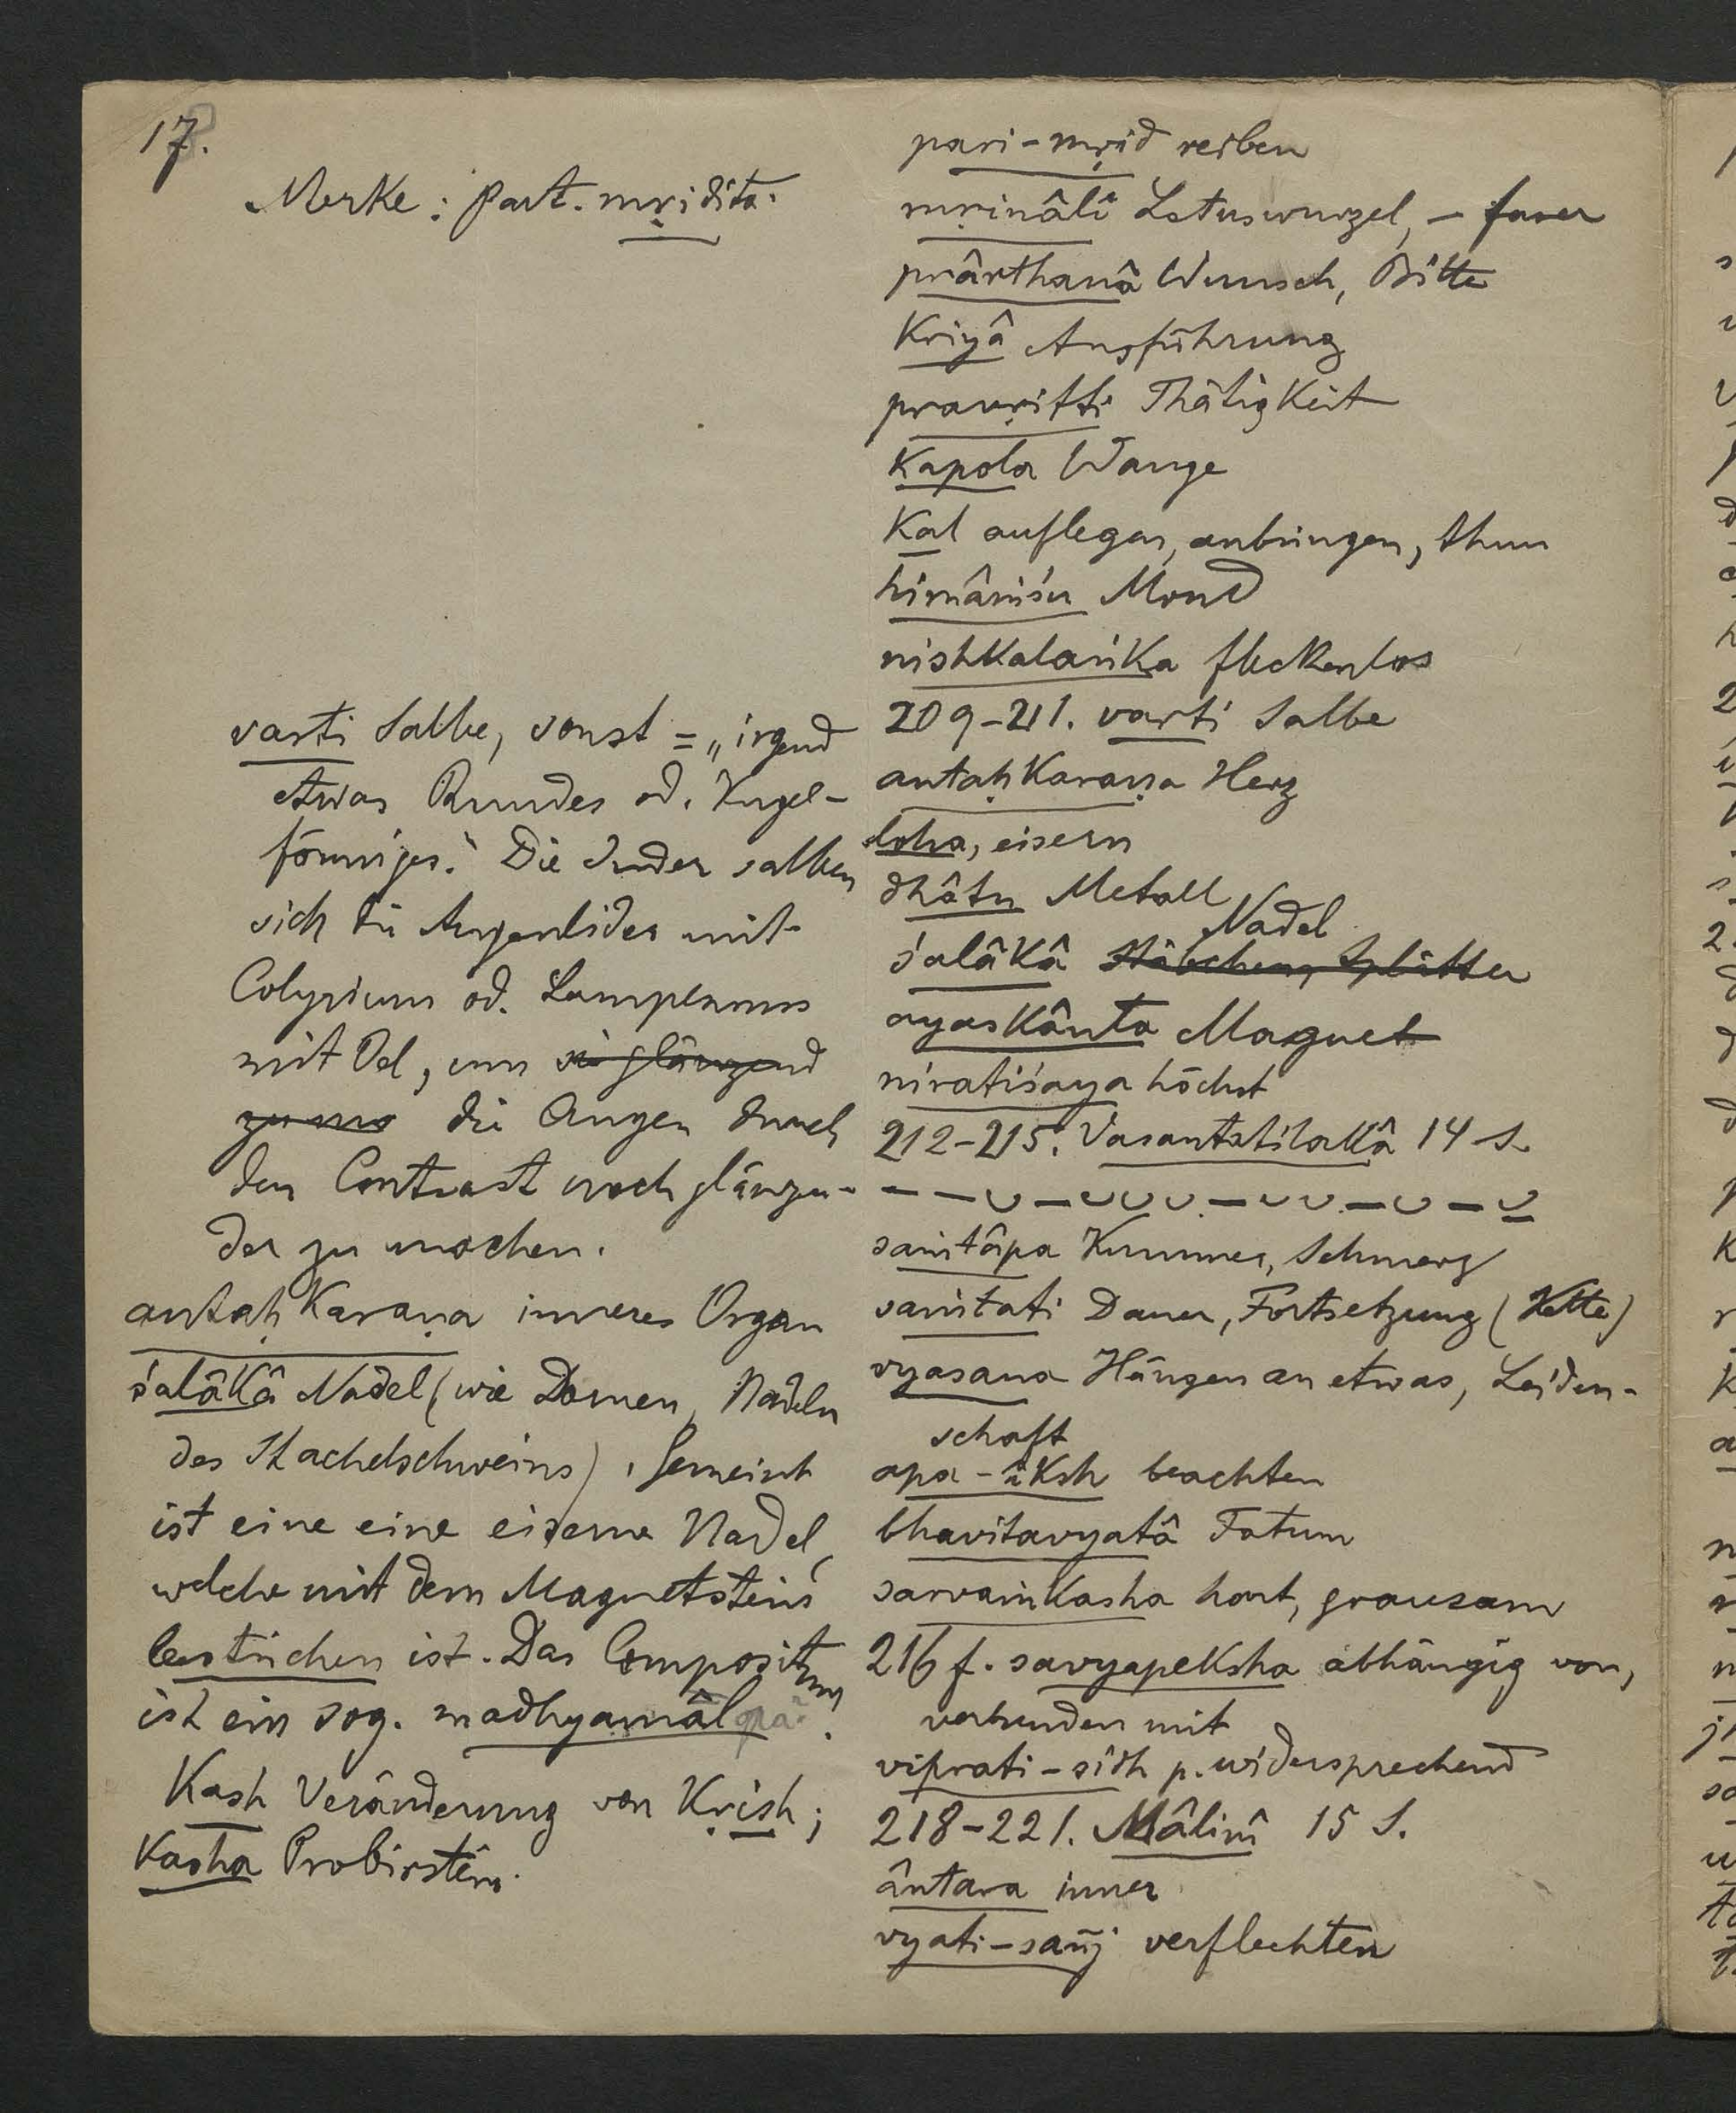 17.
Merke: Part. mṛidita.
varti Salbe, sonst = „irgend
etwas Rundes od. Kugel-
förmiges." Die Inder salben
sich die Augenlider mit
Colyrium od. Lampenruss
mit Oel, um sie glänzend
die Augen durch
den Contrast noch glänzen-
der zu machen.
antaḥkaraṇa inneres Organ
śalâkâ Nadel (wie Dornen, Nadeln
des Stachelschweins), Gemeint
ist eine eine eiserne Nadel,
welche mit dem Magnetstein
bestrichen ist. Das Compositum
ist ein sog. madhyamâl
Kash Veränderung von Kṛish;
Kasha Probirstein.
pari-mṛid reiben
mṛinâlî Lotuswurzel, - faser
prârthanâ Wunsch, Bitte
Kriyâ Ausführung
pravṛitti Thätigkeit
Kapola Wange
Kal auflegen, anbringen, thun
himâṁśu Mond
nishkalaṅka fleckenlos
209-211. varti Salbe
antaḥkaraṇa Herz
loha, eisern
dhâtu Metall
Nadel
śalâkâ Stäbchen, Splitter
ayaskânta Magnet
niratiśaya höchst
212-215. Vasantatilakâ 14 S.
– – ᴗ – ᴗ ᴗ ᴗ – ᴗ ᴗ – ᴗ – ᴗ
saṁtâpa Kummer, Schmerz
saṁtati Dauer, Fortsetzung (Kette)
vyasana Hängen an etwas, Leiden-
schaft
apa-îksh beachten
bhavitavyatâ Fatum
sarvaṁkasha hart, grausam
216 f. savyapeksha abhängig von,
verbunden mit
viprati-sidh p. widersprechend
218-221. Mâlinî 15 S.
ântara inner
vyati-sañj verflechten